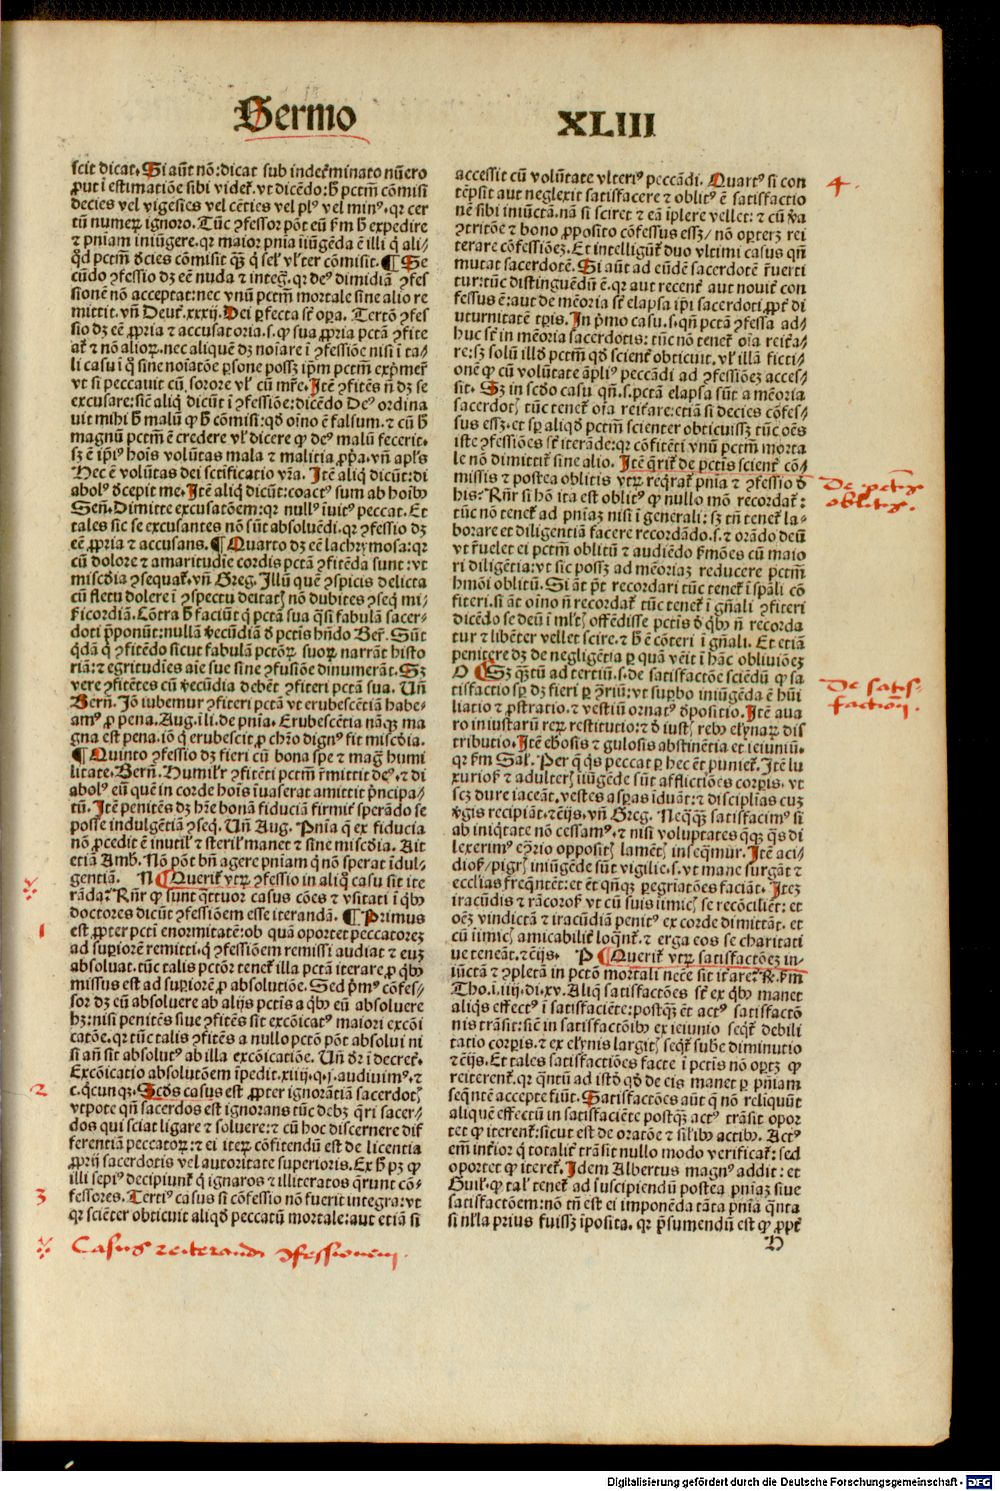 Sermo
XLIII
scit dicat. Si aūt nō: dicat sub indet̄minato nūero
ꝓut ī estimatiōe sibi videt̄. vt dicēdo: h̄ pctm̄ cōmisi
decies vel vigesies vel cēties vel plꝰ vel minꝰ. qr cer
tū numeꝝ ignoro. Tūc ꝯfessor pōt eū f̄m h̄ expedire
⁊ pn̄iam iniūgere. qr maior pn̄ia iniūgēda ē illi q̄ ali/
qd̄ pctm̄ d̄cies cōmisit qꝫ q̄ sel̓ vl̓ter cōmisit. ¶ Se
cūdo ꝯfessio dꝫ eē nuda ⁊ inteḡ. qr deꝰ dimidiā ꝯfes
sionē nō acceptat: nec vnū pctm̄ mortale sine alio re
mittit. vn̄ Deut̄. xxxij. Dei ꝑfecta st̄ oꝑa. Tertō ꝯfes
sio dꝫ eē ꝓpria ⁊ accusatoria. s. ꝙ sua ꝓpria pctā ꝯfite
at̄ ⁊ nō alioꝝ. nec aliquē dꝫ noīare ī ꝯfessiōe nisi ī ta/
li casu ī q̄ sine noīatōe ꝑsone possꝫ ip̄m pctm̄ exp̄mer̄
vt si peccauit cū sorore vl̓ cū mr̄e. Itē ꝯfitēs n̄ dꝫ se
excusare: sic̄ aliq̄ dicūt ī ꝯfessiōe: dicēdo Deꝰ ordina
uit mihi h̄ malū ꝙ h̄ cōmisi: qd̄ oīno ē falsum. ⁊ cū h̄
magnū pctm̄ ē credere vl̓ dicere ꝙ deꝰ malū fecerit.
sꝫ ē ip̄iꝰ hoīs volūtas mala ⁊ malitia ꝓp̄a. vn̄ apl̓s
Hec ē volūtas dei sctificatio vr̄a. Itē aliq̄ dicūt: di
abolꝰ d̄cepit me. Itē aliq̄ dicūt: coactꝰ sum ab hoībꝰ
Sen̄. Dimitte excusatōem: qr nullꝰ īuitꝰ peccat. Et
tales sic se excusantes nō sūt absoluēdi. qr ꝯfessio dꝫ
eē ꝓpria ⁊ accusans. ¶ Quarto dꝫ eē lachrymosa: qr
cū dolore ⁊ amaritudīe cordis pctā ꝯfitēda sunt: vt
miscd̄ia ꝯsequat̄. vn̄ Greg. Illū quē ꝯspicis delicta
cū fletu dolere ī ꝯspectu deitatꝭ nō dubites ꝯseq̄ mi/
ẜicordiā. Cōtra h̄ faciūt q̄ pctā sua qsi fabulā sacer/
doti p̄ponūt: nullā v̄ecūdiā d̄ pctis hn̄do Ber̄. Sūt
qdā q̄ ꝯfitēdo sicut fabulā pctōꝝ suoꝝ narrāt histo
riā: ⁊ egritudīes aīe sue sine ꝯfusiōe dinumerāt. Sꝫ
vere ꝯfitētes cū v̄ecūdia debēt ꝯfiteri pctā sua. Un̄
Bern̄. Iō iubemur ꝯfiteri pctā vt erubescētiā habe/
amꝰ ꝓ pena. Aug. ī li. de pn̄ia. Erubescētia nāqꝫ ma
gna est pena. iō q̄ erubescit ꝓ chr̄o dignꝰ fit miscd̄ia.
¶ Quinto ꝯfessio dꝫ fieri cū bona spe ⁊ maḡ humi
litate. Bern̄. Humil̓r ꝯfitēti pctm̄ r̄mittit deꝰ. ⁊ di
abolꝰ eū quē in corde hoīs īuaserat amittit p̄ncipa/
tū. Itē penitēs dꝫ hr̄e bonā fiduciā firmit̄ sperādo se
posse indulgētiā ꝯseq̄. Un̄ Aug. Pn̄ia q̄ ex fiducia
nō ꝓcedit ē inutil̓ ⁊ steril̓ manet ⁊ sine miscd̄ia. Ait
etiā Amb. Nō pōt bn̄ agere pn̄iam q̄ nō sperat īdul/
gentiā. N ¶ Querit̄ vtꝝ ꝯfessio in aliq̄ casu sit ite
rāda? Rn̄r ꝙ sunt q̄ttuor casus cōes ⁊ vsitati ī qbꝰ
doctores dicūt ꝯfessiōem esse iterandā. ¶ Primus
est ꝓpter pctī enormitatē: ob quā oportet peccatoreꝫ
ad suꝑiorē remitti. q̄ ꝯfessiōem remissī audiat ⁊ euꝫ
absoluat. tūc talis pctōr tenet̄ illa pctā iterare ꝓ qbꝰ
missus est ad suꝑiorē ꝓ absolutiōe. Sed p̄mꝰ cōfes/
sor dꝫ eū absoluere ab alijs pctis a qbꝰ eū absoluere
hꝫ: nisi penitēs siue ꝯfitēs sit excōicatꝰ maiori excōi
catōe. qr tūc talis ꝯfitēs a nullo pctō pōt absolui ni
si an̄ sit absolutꝰ ab illa excōicatiōe. Un̄ dr̄ ī decret̄.
Excōicatio absolutōem īpedit. xiiij. q. j. audiuimꝰ. ⁊
c. q̄cunqꝫ. Scd̄s casus est ꝓpter ignorātiā sacerdotꝭ
vtpote qn̄ sacerdos est ignorans tūc debꝫ q̄ri sacer/
dos qui sciat ligare ⁊ soluere: ⁊ cū hoc discernere dif
ferentiā peccatoꝝ: ⁊ ei iteꝝ cōfitendū est de licentia
ꝓprij sacerdotis vel autoritate superioris. Ex h̄ pꝫ ꝙ
illi sepiꝰ decipiunt̄ q̄ ignaros ⁊ illiteratos q̄runt cō/
fessores. Tertiꝰ casus si cōfessio nō fuerit integra: vt
qr sciēter obticuit aliqd̄ peccatū mortale: aut etiā si
accessit cū volūtate vlteriꝰ peccādi. Quartꝰ si con
tēpsit aut neglexit satisfacere ⁊ oblitꝰ ē satisfactio
nē sibi iniūctā. nā si sciret ⁊ eā īplere vellet: ⁊ cū v̄a
ꝯtritōe ⁊ bono ꝓposito cōfessus essꝫ/ nō oꝑterꝫ rei
terare cōfessiōeꝫ. Et intelligūt̄ duo vltimi casus qn̄
mutat sacerdotē. Si aūt ad eūdē sacerdotē r̄uerti
tur: tūc distinguēdū ē. qr aut recent̄ aut nouit̄ con
fessus ē: aut de mēoria st̄ elapsa ip̄i sacerdoti ꝓpt̄ di
uturnitatē tꝑis. In p̄mo casu. s. qn̄ pctā ꝯfessa ad/
huc st̄ in mēoria sacerdotis: tūc nō tenet̄ oīa reit̄a/
re: sꝫ solū illd̄ pctm̄ qd̄ scient̄ obticuit. vl̓ illā ficti/
onē ꝙ cū volūtate āpliꝰ peccādi ad ꝯfessiōeꝫ acces/
sit. Sꝫ in scd̄o casu qn̄. s. pctā elapsa sūt a mēoria
sacerdotꝭ tūc tenet̄ oīa reit̄are: etiā si decies cōfes/
sus essꝫ. et sꝑ aliqd̄ pctm̄ scienter obticuissꝫ tūc oēs
iste ꝯfessiōes st̄ iterāde: qr cōfitēti vnū pctm̄ morta
le nō dimittit̄ sine alio. Itē q̄rit̄ de pctis scient̄ cō/
missis ⁊ postea oblitis vtꝝ reqrat̄ pn̄ia ⁊ ꝯfessio d̄
his? Rn̄r si hō ita est oblitꝰ ꝙ nullo mō recordat̄:
tūc nō tenet̄ ad pn̄iaꝫ nisi ī generali: sꝫ tn̄ tenet̄ la/
borare et diligentiā facere recordādo. s. ⁊ orādo deū
vt r̄uelet ei pctm̄ oblitū ⁊ audiēdo ẜmōes cū maio
ri diligētia: vt sic possꝫ ad mēoriaꝫ reducere pctm̄
hmōi oblitū. Si āt p̄t recordari tūc tenet̄ ī sꝑali cō
fiteri. si āt oīno n̄ recordat̄ tūc tenet̄ ī gn̄ali ꝯfiteri
dicēdo se deū ī ml̓tꝭ offēdisse pctis d̄ qbꝰ n̄ recorda
tur ⁊ libēter vellet scire. ⁊ h̄ ē cōteri ī gn̄ali. Et etiā
penitere dꝫ de negligētia ꝑ quā vēit ī hāc obliuiōeꝫ
O ¶ Sꝫ qꝫtū ad tertiū. s. de satisfactōe sciēdū ꝙ sa
tisfactio sꝑ dꝫ fieri ꝑ ꝯr̄iū: vt suꝑbo iniūgēda ē hūi
liatio ⁊ ꝓstratio. ⁊ vestiū ornatꝰ d̄positio. Itē aua
ro iniustarū reꝝ restitutio: ⁊ d̄ iustꝭ rebꝰ elynaꝝ dis
tributio. Itē ebōsis ⁊ gulosis abstinētia et ieiuniū.
qr ẜm Sal̓. Per q̄ qs peccat ꝑ hec et puniet̄. Itē lu
xurioẜ ⁊ adulterꝭ iniūgēde sūt afflictiōes corꝑis. vt
scꝫ dure iaceāt. vestes asꝑas īduāt: ⁊ disciplīas cuꝫ
v̄gis recipiāt. ⁊ cēijs. vn̄ Greg. Neqꝫ satisfacimꝰ si
ab iniqtate nō cessamꝰ. ⁊ nisi voluptates qꝫ qs di
lexerimꝰ ex̄rio oppositꝭ lamētꝭ inseq̄mur. Itē aci/
dioẜ/ pigrꝭ iniūgēde sūt vigilie. s. vt mane surgāt ⁊
ecclīas freq̄ntēt: et ēt qn̄qꝫ ꝑegriatōes faciāt. Iteꝫ
iracūdis ⁊ rācoroẜ vt cū suis inimicꝭ se recōciliēt: et
oēꝫ vindictā ⁊ iracūdiam penitꝰ ex corde dimittāt. et
cū inimicꝭ amicabilit̄ loqn̄t̄. ⁊ erga eos se charitati
ue teneāt. ⁊ cēijs. P ¶ Querit̄ vtꝝ satisfactōeꝫ in/
iūctā ⁊ ꝯpletā in pctō mortali necē sit it̄are? R̄. ẜm
Tho. ī. iiij. di. xv. Aliq̄ satisfactōes st̄ ex qbꝰ manet
aliqs effectꝰ ī satisfaciēte: postqꝫ et actꝰ satisfactō
nis trāsit: sic̄ in satisfactōibꝰ ex ieiunio seqt̄ debili
tatio corꝑis. ⁊ ex elynis largitꝭ seqt̄ subē diminutio
⁊ cēijs. Et tales satisfactiōes facte ī pctis nō oꝑtꝫ ꝙ
reiterent̄. qr q̄ntū ad istd̄ qd̄ de eis manet ꝑ pn̄iam
seq̄ntē accepte fiūt. Satisfactōes aūt q̄ nō reliquūt
aliquē effectū in satisfaciēte postqꝫ actꝰ trāsit opor
tet ꝙ iterent̄: sicut est de oratōe ⁊ sil̓ibꝰ actibꝰ. Actꝰ
em̄ int̄ior q̄ totalit̄ trāsit nullo modo verificat̄: sed
oportet ꝙ iteret̄. Idem Albertus magnꝰ addit: et
Guil̓. ꝙ tal̓ tenet̄ ad suscipiendū postea pn̄iaꝫ siue
satisfactōem: nō tn̄ est ei imponēda tāta pn̄ia q̄nta
si nl̓la prius fuissꝫ īposita. qr p̄sumendū est ꝙ ꝓpt̄
H
4.
De pctꝭ
oblitꝭ.
De satis-
factioē.
1
2
3
Casus reiterandi ꝯfessionem.
Digitalisierung gefördert durch die Deutsche Forschungsgemeinschaft - DFG